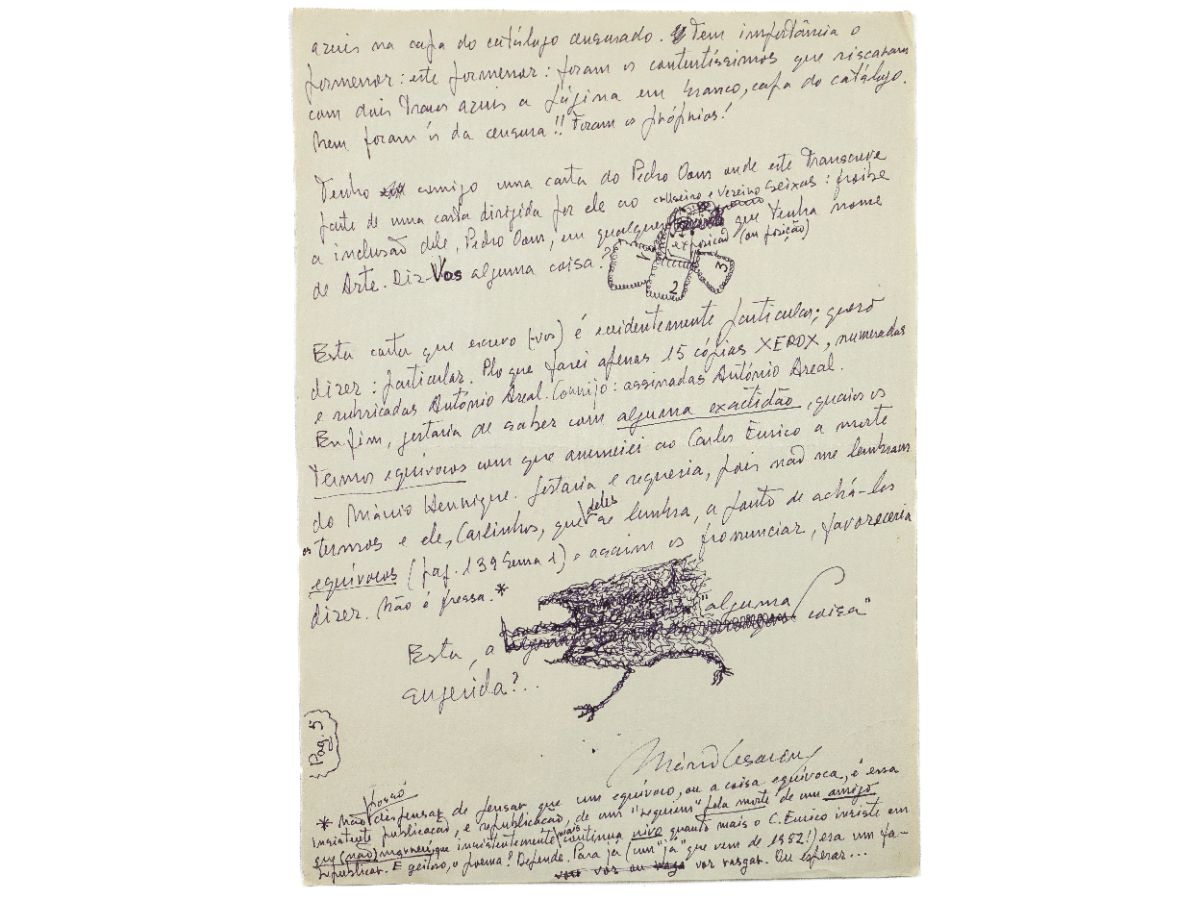 azuis na capa do catálogo censurado. Tem importância o
pormenor: este pormenor: foram os contentíssimos que riscaram
com dois traços azuis a página em branco, capa do catálogo.
Nem foram os da censura!! Foram os próprios!
Tenho comigo uma carta do Pedro Oom onde este transcreve
parte de uma carta dirigida por ele ao Cruzeiro Seixas: proibe
a inclusão dele, Pedro Oom, em qualquer exposição (ou posição) que tenha nome
de Arte. Diz-Vos alguma coisa?
1
2
3
Esta carta que escrevo (-vos) é evidentemente particular; quero
dizer: particular. Plo que farei apenas 15 cópias XEROX, numeradas
e rubricadas António Areal. Corrijo: assinadas António Areal.
Enfim, gostaria de saber com alguma exactidão, quais os
termos equívocos com que anunciei ao Carlos Eurico a morte
do Mário Henrique. Gostaria e requeria, pois não me lembram
os termos e ele, Carlinhos, que deles se lembra, a ponto de achá-los
equívocos (pag. 139 Sema 1) e assim os pronunciar, favoreceria
dizer. Não é pressa. *
Esta, a "alguma coisa"
sugerida?..
Pag. 5
Mário Cesariny
* Não posso dispensar de pensar que um equívoco, ou a coisa equívoca, é essa
insistente publicação, e republicação, de um "requiem" pela morte de um amigo
que (não) morreu, que insistentemente mais continua vivo quanto mais o C. Eurico insiste em
republicar. É geitoso, o poema? Depende. Para já (um "já" que vem de 1952!) era um fa-
vor vos rasgar. Ou esperar...